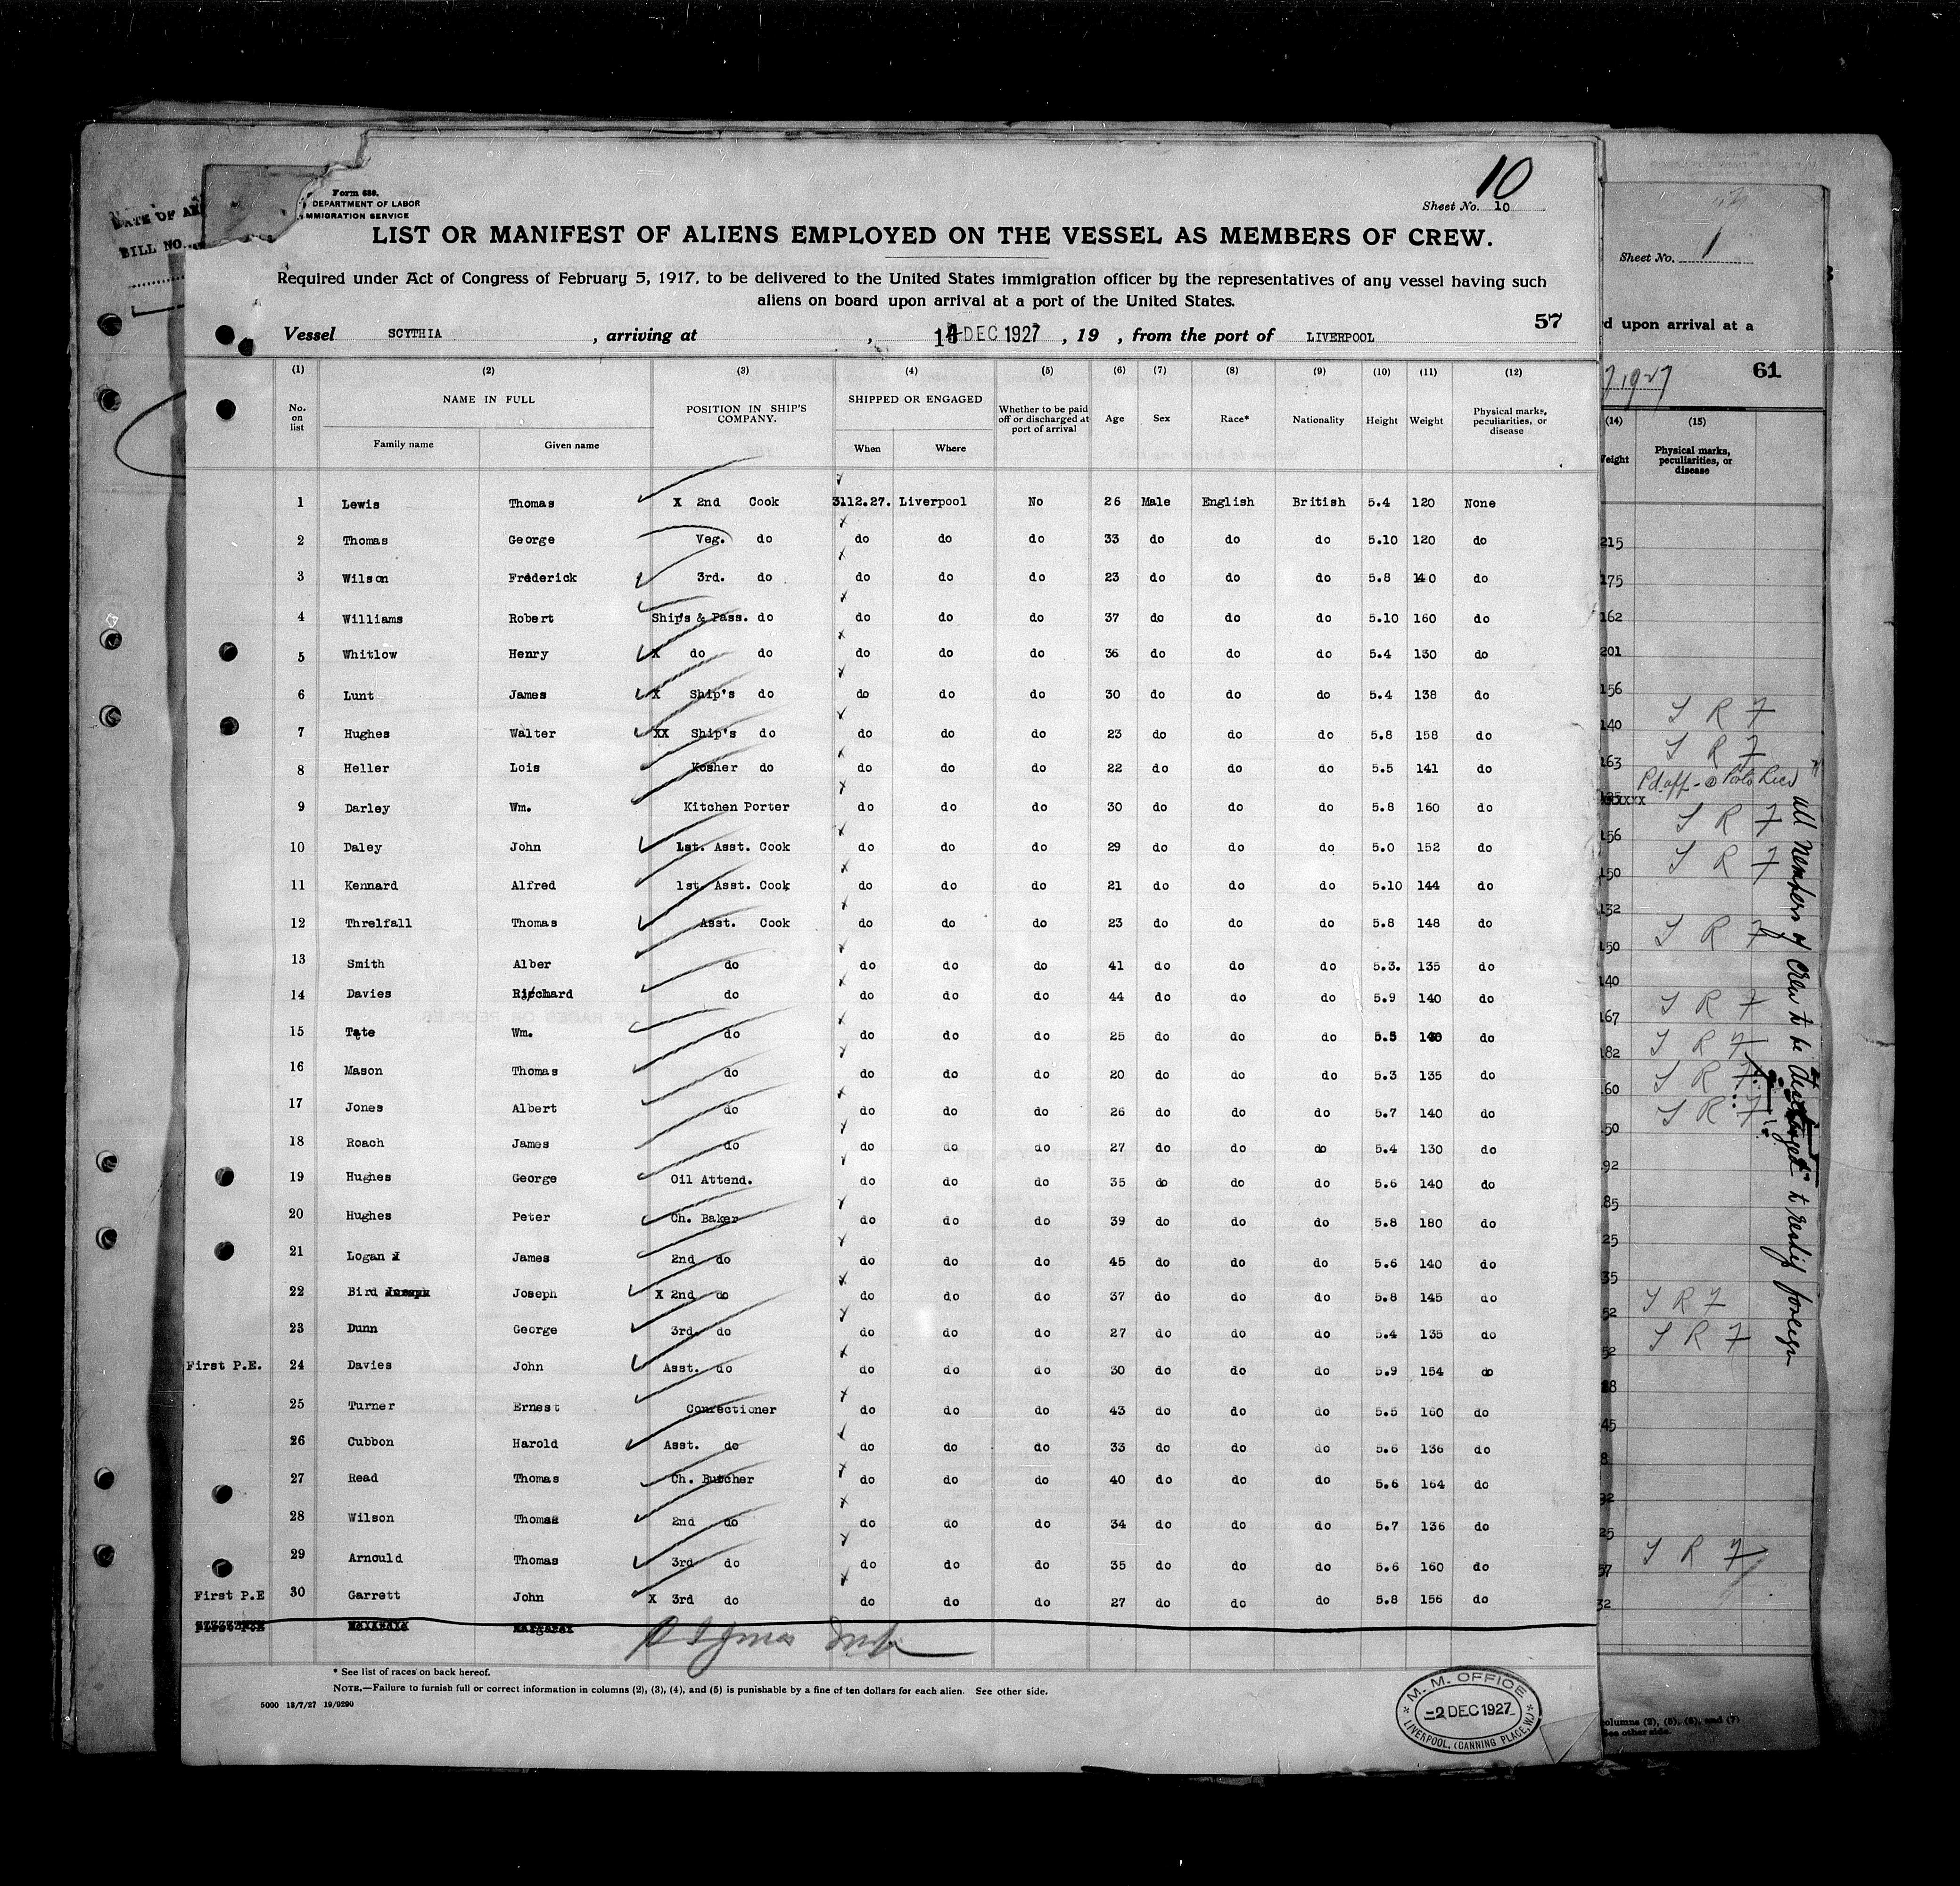 10
Form 689.
DEPARTMENT OF LABOR
MMIGRATION SERVICE
Sheet No. 10
LIST OR MANIFEST OF ALIENS EMPLOYED ON THE VESSEL AS MEMBERS OF CREW.
Required under Act of Congress of February 5, 1917, to be delivered to the United States immigration officer by the representatives of any vessel having such
aliens on board upon arrival at a port of the United States.
57
Vessel SCYTHIA , arriving at , DEC 1927 , 19 , from the port of LIVERPOOL
(1) (2) (3) (4) (5) (6) (7) (8) (9) (10) (11) (12)
No. on list NAME IN FULL Family name Given name POSITION IN SHIP'S COMPANY. SHIPPED OR ENGAGED When Where Whether to be paid off or discharged at port of arrival Age Sex Race* Nationality Height Weight Physical marks, peculiarities, or disease
1 Lewis Thomas X 2nd Cook 3112.27. Liverpool No 26 Male English British 5.4 120 None
2 Thomas George Veg. do do do do 33 do do do 5.10 120 do
3 Wilson Frederick 3rd. do do do do 23 do do do 5.8 140 do
4 Williams Robert Ship's & Pass. do do do do 37 do do do 5.10 160 do
5 Whitlow Henry X do do do do do 36 do do do 5.4 130 do
6 Lunt James X Ship's do do do do 30 do do do 5.4 138 do
7 Hughes Walter XX Ship's do do do do 23 do do do 5.8 158 do
8 Heller Lois Kosher do do do do 22 do do do 5.5 141 do
9 Darley Wm. Kitchen Porter do do do 30 do do do 5.8 160 do
10 Daley John 1st. Asst. Cook do do do 29 do do do 5.0 152 do
11 Kennard Alfred 1st. Asst. Cook do do do 21 do do do 5.10 144 do
12 Threlfall Thomas Asst. Cook do do do 23 do do do 5.8 148 do
13 Smith Alber do do do do 41 do do do 5.3. 135 do
14 Davies Richard do do do do 44 do do do 5.9 140 do
15 Tate Wm. do do do do 25 do do do 5.5 140 do
16 Mason Thomas do do do do 20 do do do 5.3 135 do
17 Jones Albert do do do do 26 do do do 5.7 140 do
18 Roach James do do do do 27 do do do 5.4 130 do
19 Hughes George Oil Attend. do do do 35 do do do 5.6 140 do
20 Hughes Peter Ch. Baker do do do 39 do do do 5.8 180 do
21 Logan James 2nd do do do do 45 do do do 5.6 140 do
22 Bird Joseph X 2nd do do do do 37 do do do 5.8 145 do
23 Dunn George 3rd. do do do do 27 do do do 5.4 135 do
First P.E. 24 Davies John Asst. do do do do 30 do do do 5.9 154 do
25 Turner Ernest Confectioner do do do 43 do do do 5.5 160 do
26 Cubbon Harold Asst. do do do do 33 do do do 5.6 136 do
27 Read Thomas Ch. Butcher do do do 40 do do do 5.6 164 do
28 Wilson Thomas 2nd do do do do 34 do do do 5.7 136 do
29 Arnould Thomas 3rd do do do do 35 do do do 5.6 160 do
First P.E 30 Garrett John X 3rd do do do do 27 do do do 5.8 156 do
* See list of races on back hereof.
NOTE.—Failure to furnish full or correct information in columns (2), (3), (4), and (5) is punishable by a fine of ten dollars for each alien. See other side.
5000 13/7/27 19/9290
M. M. OFFICE
2 DEC 1927
LIVERPOOL, (CANNING PLACE, W.)
BILL NO.
Sheet No. 1
d upon arrival at a
61
1927
(14) (15)
eight Physical marks, peculiarities, or disease
215
175
162
201
156
140 S R F
163 S R F
Pd off - @ Porto Rico
156 S R F
150 S R F
132
150 S R F
140
167 S R F
182 S R F
60 S R F
50 S R F
92
85
25
35
52 S R F
52 S R F
45
57 S R F
32
all members of crew to be to reship foreign
olumns (2), (5), (6), and (7)
See other side.